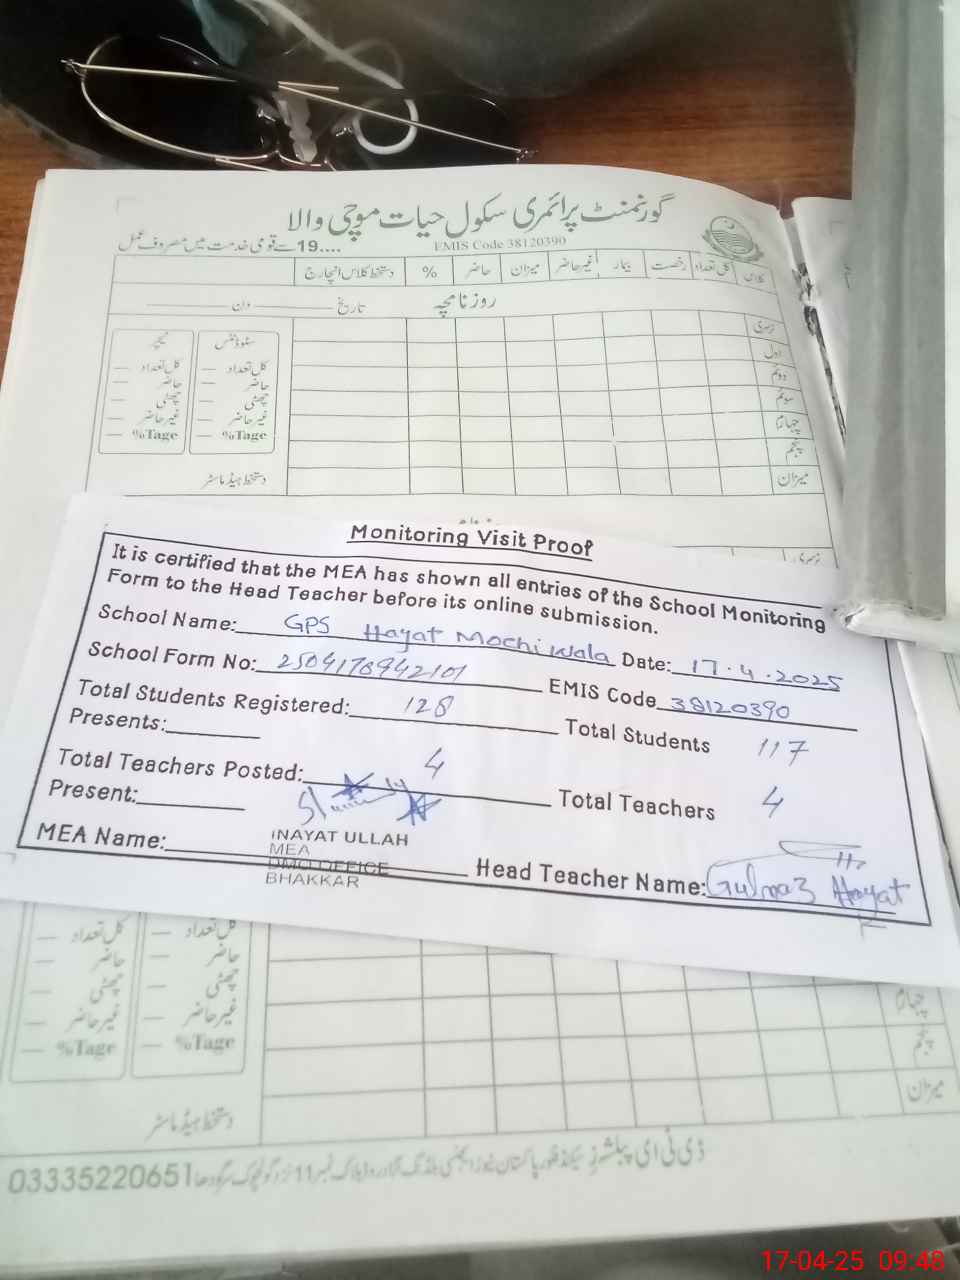 گورنمنٹ پرائمری سکول حیات موچی والا
19.... سے قومی خدمت میں مصروف عمل
EMIS Code 38120390
کلاس کل تعداد رخصت بیمار غیر حاضر میزان حاضر % دستخط کلاس انچارج
روزنامچہ
تاریخ دن
نرسری
اول
دوئم
سوئم
چہارم
پنجم
میزان
سٹوڈنٹس ٹیچر
کل تعداد — کل تعداد —
حاضر — حاضر —
چھٹی — چھٹی —
غیر حاضر — غیر حاضر —
%Tage — %Tage —
دستخط ہیڈ ماسٹر
نرسری
Monitoring Visit Proof
It is certified that the MEA has shown all entries of the School Monitoring
Form to the Head Teacher before its online submission.
School Name: GPS Hayat Mochi Wala Date: 17.4.2025
School Form No: 2504178942101 EMIS Code 38120390
Total Students Registered: 128 Total Students 117
Presents:
Total Teachers Posted: 4 Total Teachers 4
Present:
MEA Name: INAYAT ULLAH
MEA
DMO OFFICE
BHAKKAR
Head Teacher Name: Gulnaz Hayat
کل تعداد — کل تعداد —
حاضر — حاضر —
چھٹی — چھٹی —
غیر حاضر — غیر حاضر —
%Tage — %Tage —
چہارم
پنجم
میزان
دستخط ہیڈ ماسٹر
ڈی ٹی ای پبلشرز سیکنڈ فلور پاکستان نیوز ایجنسی بلڈنگ بلاک نمبر 11 نزد گول چوک سرگودھا 03335220651
17-04-25 09:48